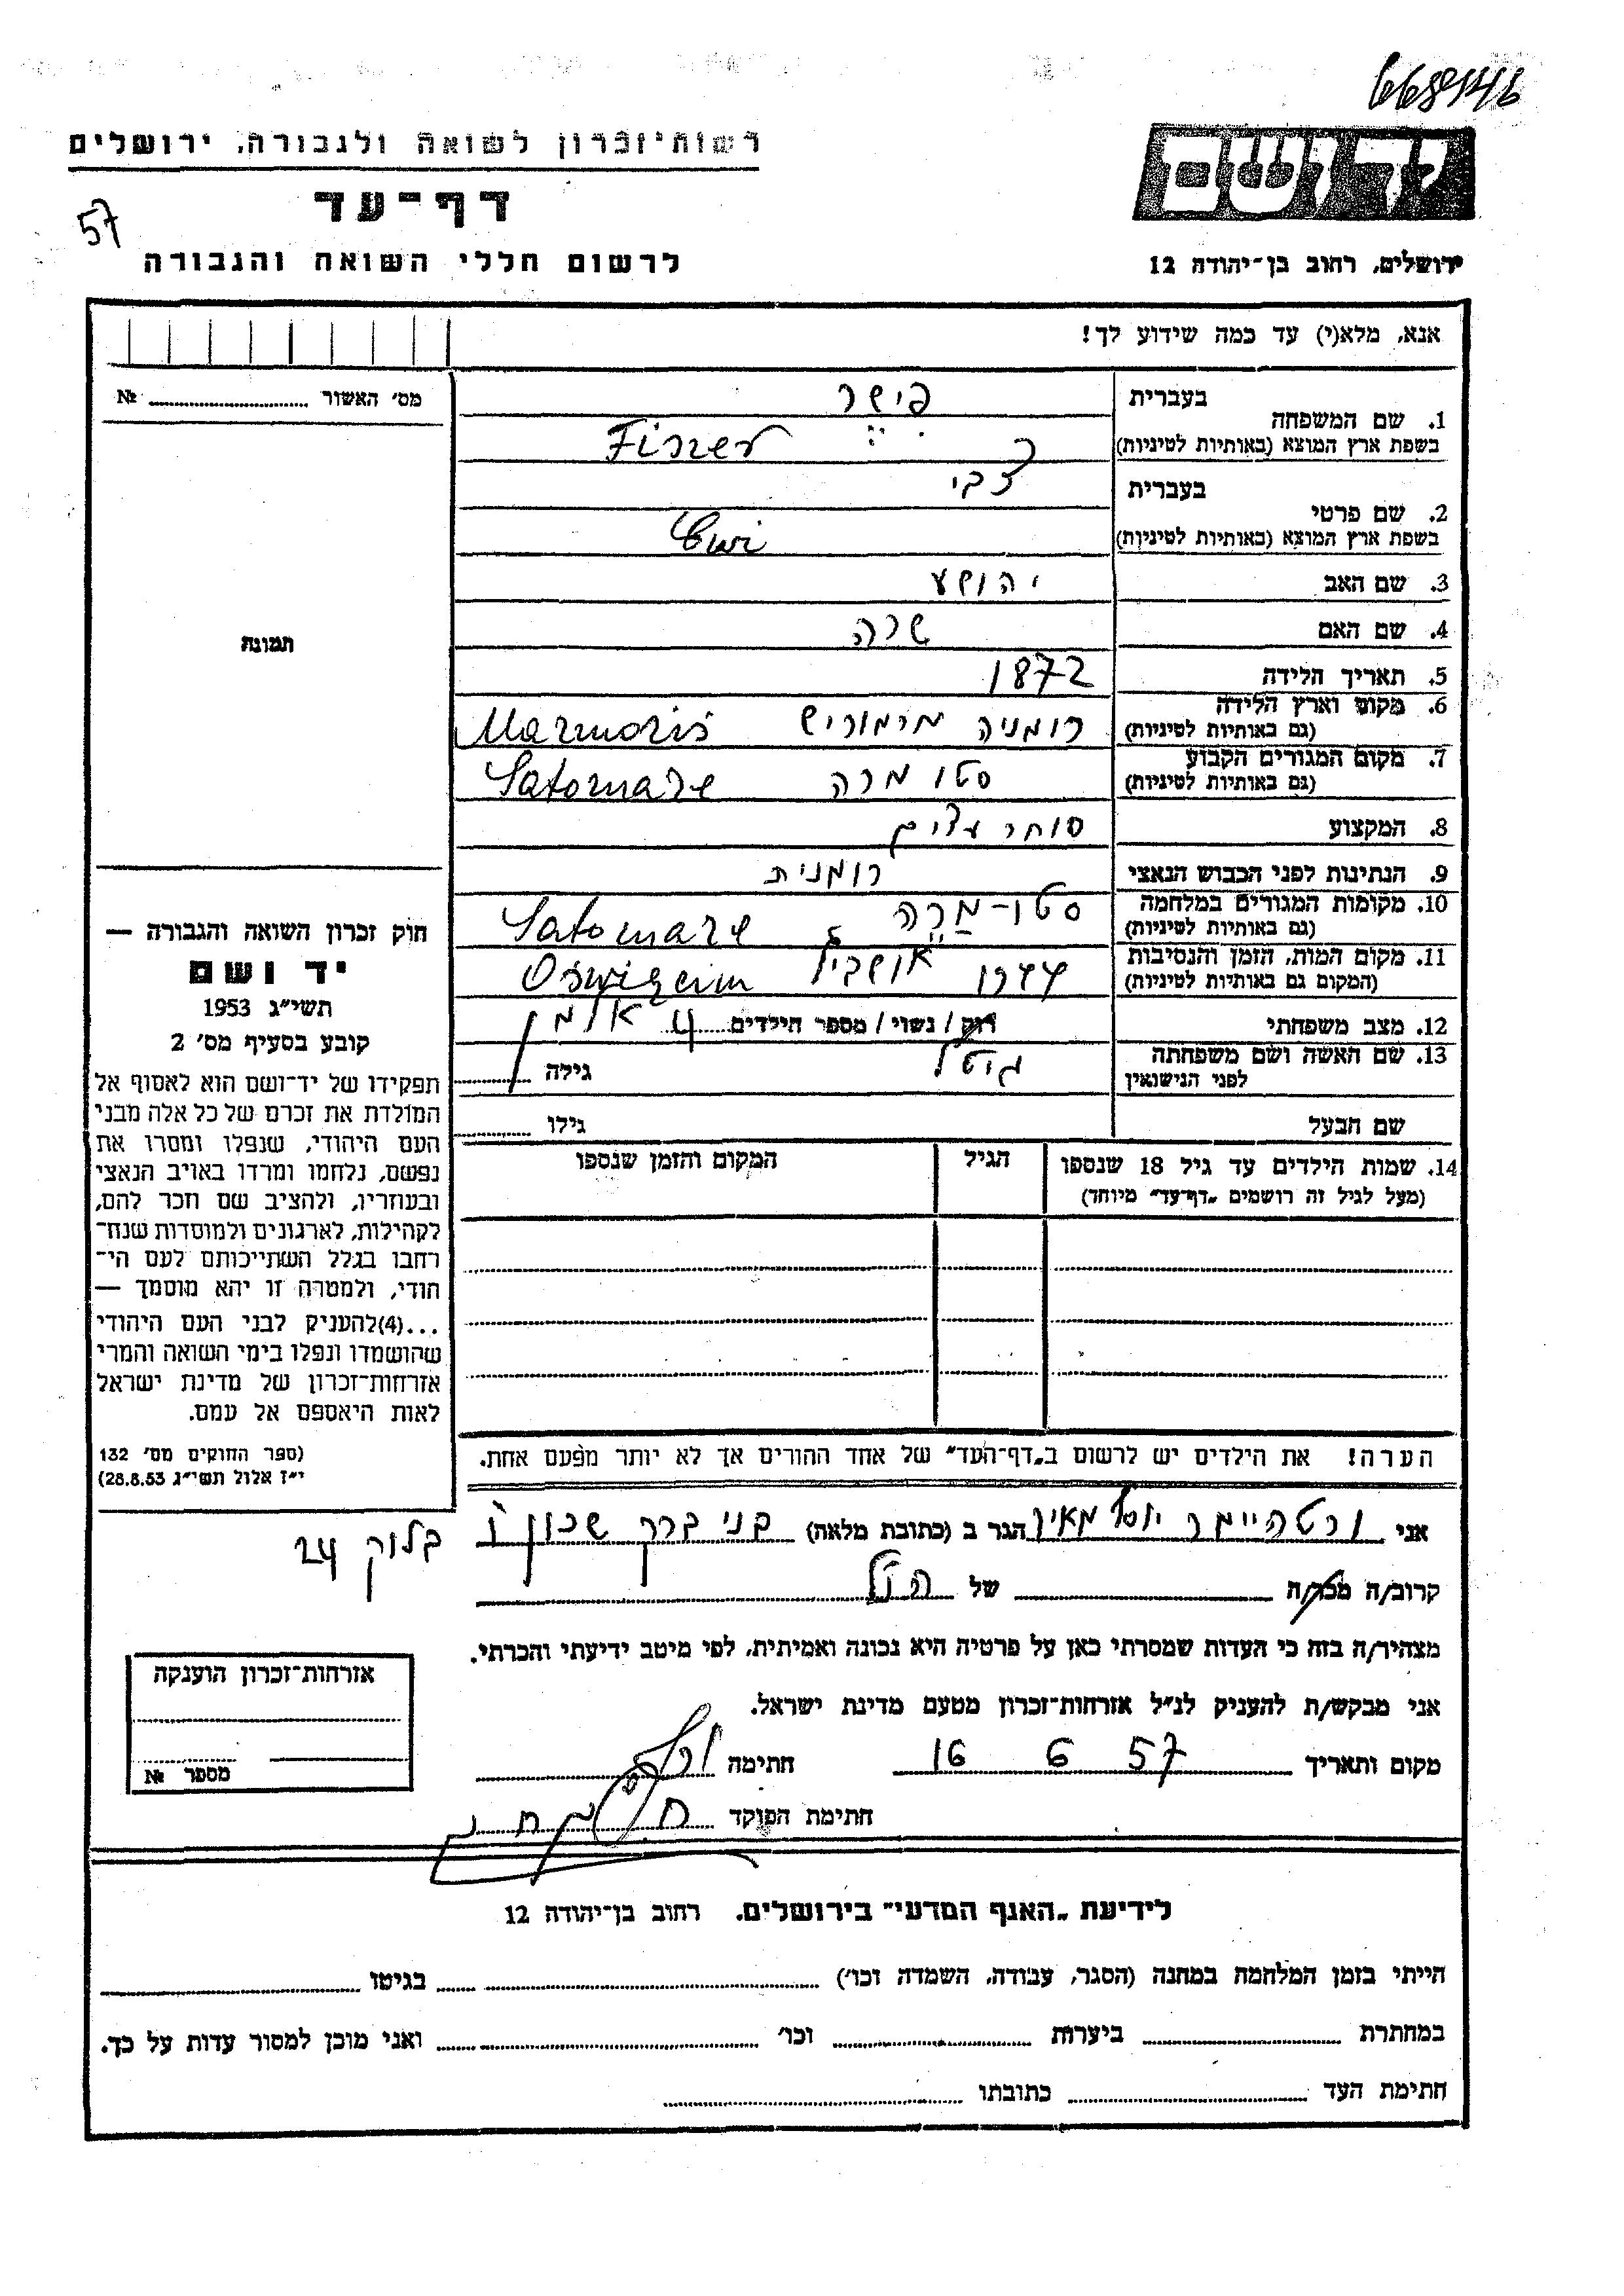 668546
רשות־זכרון לשואה ולגבורה, ירושלים
דף־עד
57
לרשום חללי השואה והגבורה
יד ושם
ירושלים, רחוב בן־יהודה 12
אנא, מלא(י) עד כמה שידוע לך!
מס׳ האשור № 
תמונה
1. שם המשפחה
בעברית
פישר
בשפת ארץ המוצא (באותיות לטיניות)
Fiszer
2. שם פרטי
בעברית
צבי
בשפת ארץ המוצא (באותיות לטיניות)
Cwi
3. שם האב יהושע
4. שם האם שרה
5. תאריך הלידה 1872
6. מקום וארץ הלידה
(גם באותיות לטיניות)
רומניה מרמוריש Marmoris
7. מקום המגורים הקבוע
(גם באותיות לטיניות)
סטו מרה Satomare
8. המקצוע סוחר עצים
9. הנתינות לפני הכבוש הנאצי רומנית
10. מקומות המגורים במלחמה
(גם באותיות לטיניות)
סטו-מרה Satomare
11. מקום המות, הזמן והנסיבות
(המקום גם באותיות לטיניות)
12. מצב משפחתי רוק / נשוי / מספר הילדים 4 אלמן
13. שם האשה ושם משפחתה
לפני הנישואין
גיטל גילה
שם הבעל גילו
14. שמות הילדים עד גיל 18 שנספו
(מעל לגיל זה רושמים „דף־עד״ מיוחד)
הגיל
המקום והזמן שנספו
הערה! את הילדים יש לרשום ב„דף־העד״ של אחד ההורים אך לא יותר מפעם אחת.
חוק זכרון השואה והגבורה —
יד ושם
תשי״ג 1953
קובע בסעיף מס׳ 2
תפקידו של יד־ושם הוא לאסוף אל
המולדת את זכרם של כל אלה מבני
העם היהודי, שנפלו ומסרו את
נפשם, נלחמו ומרדו באויב הנאצי
ובעוזריו, ולהציב שם וזכר להם,
לקהילות, לארגונים ולמוסדות שנח־
רחבו בגלל השתייכותם לעם הי־
הודי, ולמטרה זו יהא מוסמך —
...(4)להעניק לבני העם היהודי
שהושמדו ונפלו בימי השואה והמרי
אזרחות־זכרון של מדינת ישראל
לאות היאספם אל עמם.
(ספר החוקים מס׳ 132
י״ז אלול תשי״ג 28.8.53)
אני ורטהיימר יוסל מאיר הגר ב (כתובת מלאה) בני ברק שכון ו
בלוק 24
קרוב/ה מכר/ה של הנ״ל
מצהיר/ה בזה כי העדות שמסרתי כאן על פרטיה היא נכונה ואמיתית, לפי מיטב ידיעתי והכרתי.
אני מבקש/ת להעניק לנ״ל אזרחות־זכרון מטעם מדינת ישראל.
מקום ותאריך 16 6 57 חתימה
חתימת הפוקד
אזרחות־זכרון הוענקה
מספר №
לידיעת „האגף המדעי״ בירושלים. רחוב בן־יהודה 12
הייתי בזמן המלחמה במחנה (הסגר, עבודה, השמדה וכו׳) בגיטו
במחתרת ביערות וכו׳ ואני מוכן למסור עדות על כך.
חתימת העד כתובתו